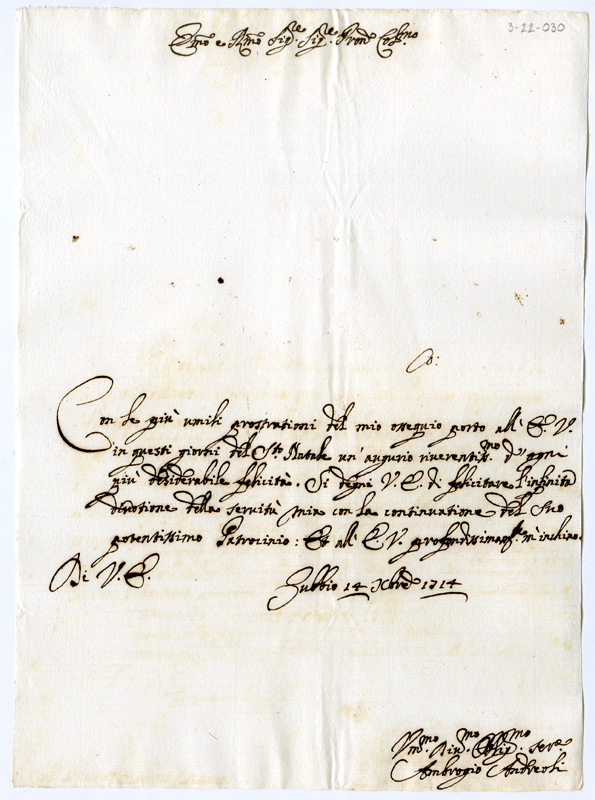 3-22-030
Emo e Rmo Sigre Sigre Pron Colmo
Con le più umili prostrationi del mio ossequio porto all' E. V.
in questi giorni del Sto Natale un' augurio riuerentissmo d' ogni
più desiderabile felicità. Si degni V. E. di felicitare l'infinita
deuotione della seruitù mia con la continuatione del Suo
potentissimo Patrocinio: Et all' E. V. profondissimamte m' inchino.
Di V. E.
Gubbio 14 Xbre 1714
Vmmo Diumo Obligmo sere
Ambrogio Andreoli